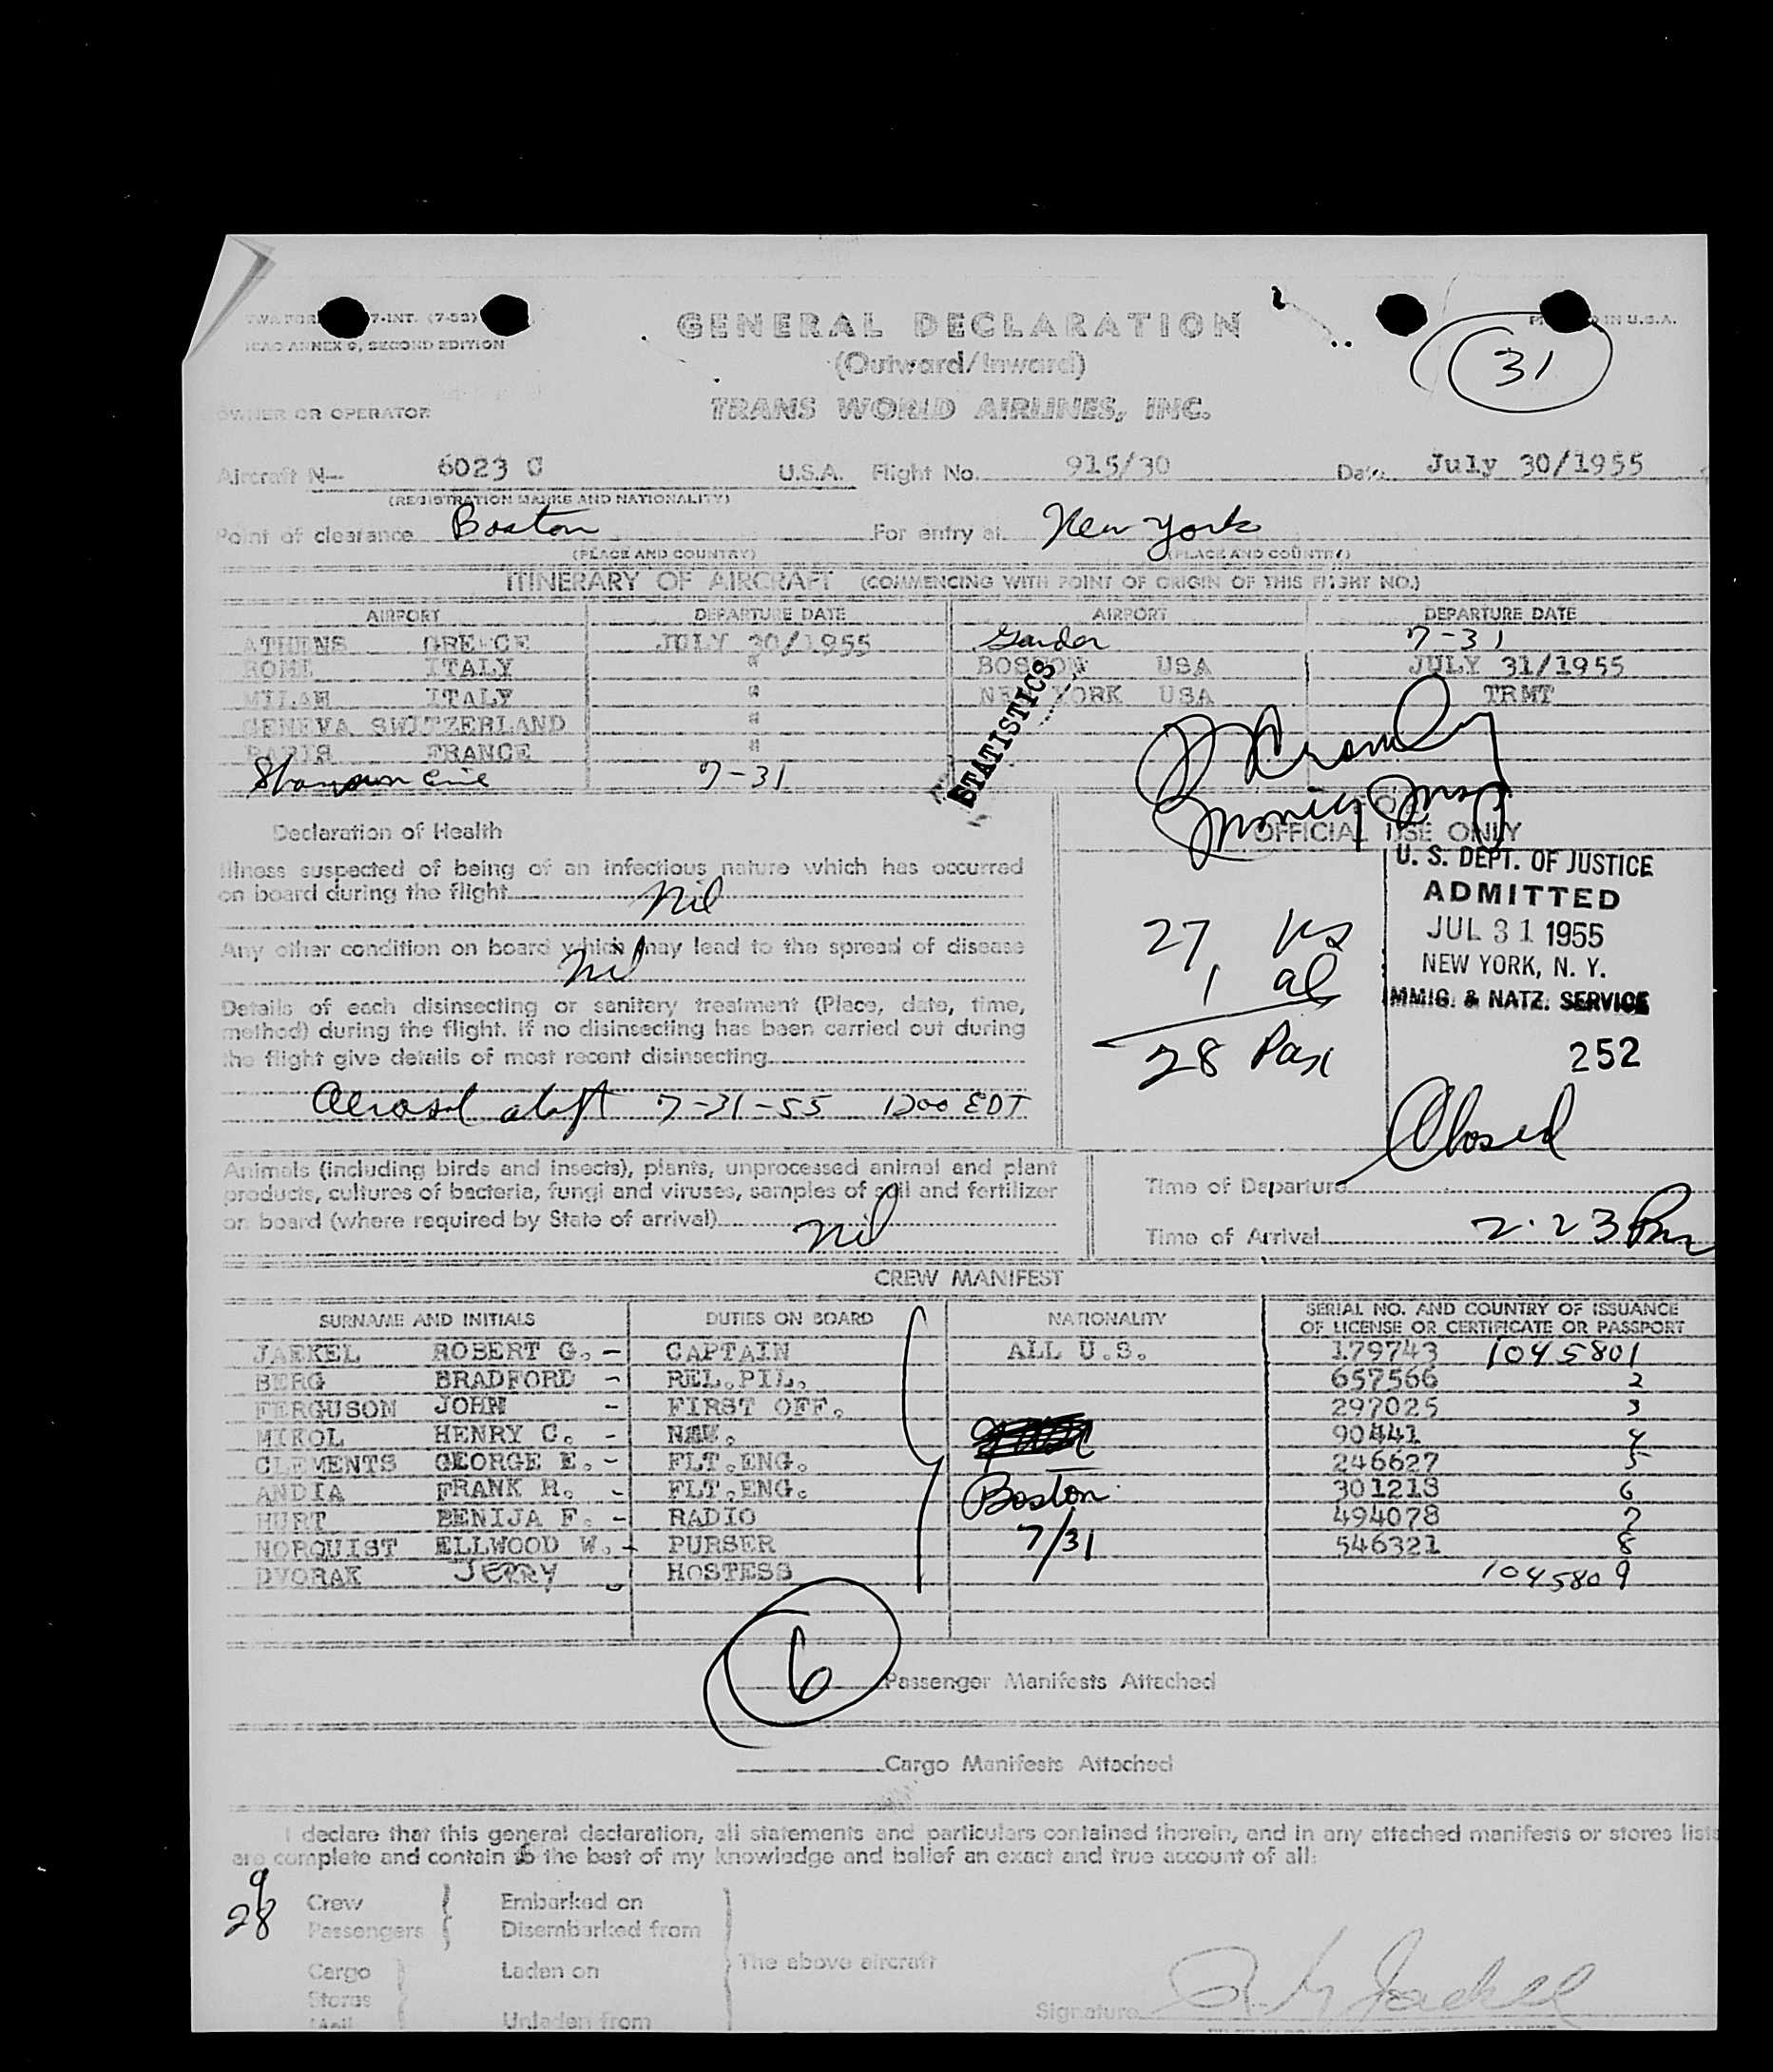 7-INT. (7-53)
ICAO ANNEX 9, SECOND EDITION
IN U.S.A.
31
GENERAL DECLARATION
(Outward/Inward)
OWNER OR OPERATOR
TRANS WORLD AIRLINES, INC.
Aircraft N— 6023 C U.S.A. Flight No. 915/30 Date July 30/1955
(REGISTRATION MARKS AND NATIONALITY)
Point of clearance Boston For entry at New York
(PLACE AND COUNTRY) (PLACE AND COUNTRY)
ITINERARY OF AIRCRAFT (COMMENCING WITH POINT OF ORIGIN OF THIS FLIGHT NO.)
AIRPORT DEPARTURE DATE AIRPORT DEPARTURE DATE
ATHENS GREECE JULY 30/1955 Gander 7-31
ROME ITALY " BOSTON USA JULY 31/1955
MILAN ITALY " NEW YORK USA TRMT
GENEVA SWITZERLAND "
PARIS FRANCE "
Shannon Eire 7-31
STATISTICS
Declaration of Health
OFFICIAL USE ONLY
Illness suspected of being of an infectious nature which has occurred
on board during the flight Nil
Any other condition on board which may lead to the spread of disease
Nil
Details of each disinsecting or sanitary treatment (Place, date, time,
method) during the flight. If no disinsecting has been carried out during
the flight give details of most recent disinsecting
Aerosol 7-31-55 1200 EDT
27 us
1 al
28 Pax
U. S. DEPT. OF JUSTICE
ADMITTED
JUL 31 1955
NEW YORK, N. Y.
IMMIG. & NATZ. SERVICE
252
Closed
Animals (including birds and insects), plants, unprocessed animal and plant
products, cultures of bacteria, fungi and viruses, samples of soil and fertilizer
on board (where required by State of arrival) Nil
Time of Departure
Time of Arrival 2.23 Pm
CREW MANIFEST
SURNAME AND INITIALS DUTIES ON BOARD NATIONALITY SERIAL NO. AND COUNTRY OF ISSUANCE
OF LICENSE OR CERTIFICATE OR PASSPORT
JAEKEL ROBERT G. - CAPTAIN ALL U.S. 179743 1045801
BERG BRADFORD - REL.PIL. 657566 2
FERGUSON JOHN - FIRST OFF. 297025 3
MIKOL HENRY C. - NAV. 90441 4
CLEMENTS GEORGE E. - FLT.ENG. 246627 5
ANDIA FRANK R. - FLT.ENG. Boston 301213 6
HURT BENIJA F. - RADIO 494078 7
NORQUIST ELLWOOD W. - PURSER 7/31 546321 8
DVORAK JERRY - HOSTESS 1045809
6 Passenger Manifests Attached
Cargo Manifests Attached
I declare that this general declaration, all statements and particulars contained therein, and in any attached manifests or stores lists
are complete and contain to the best of my knowledge and belief an exact and true account of all:
9 Crew Embarked on
28 Passengers Disembarked from
The above aircraft
Cargo Laden on
Stores
Mail Unladen from
Signature R G Jaekel